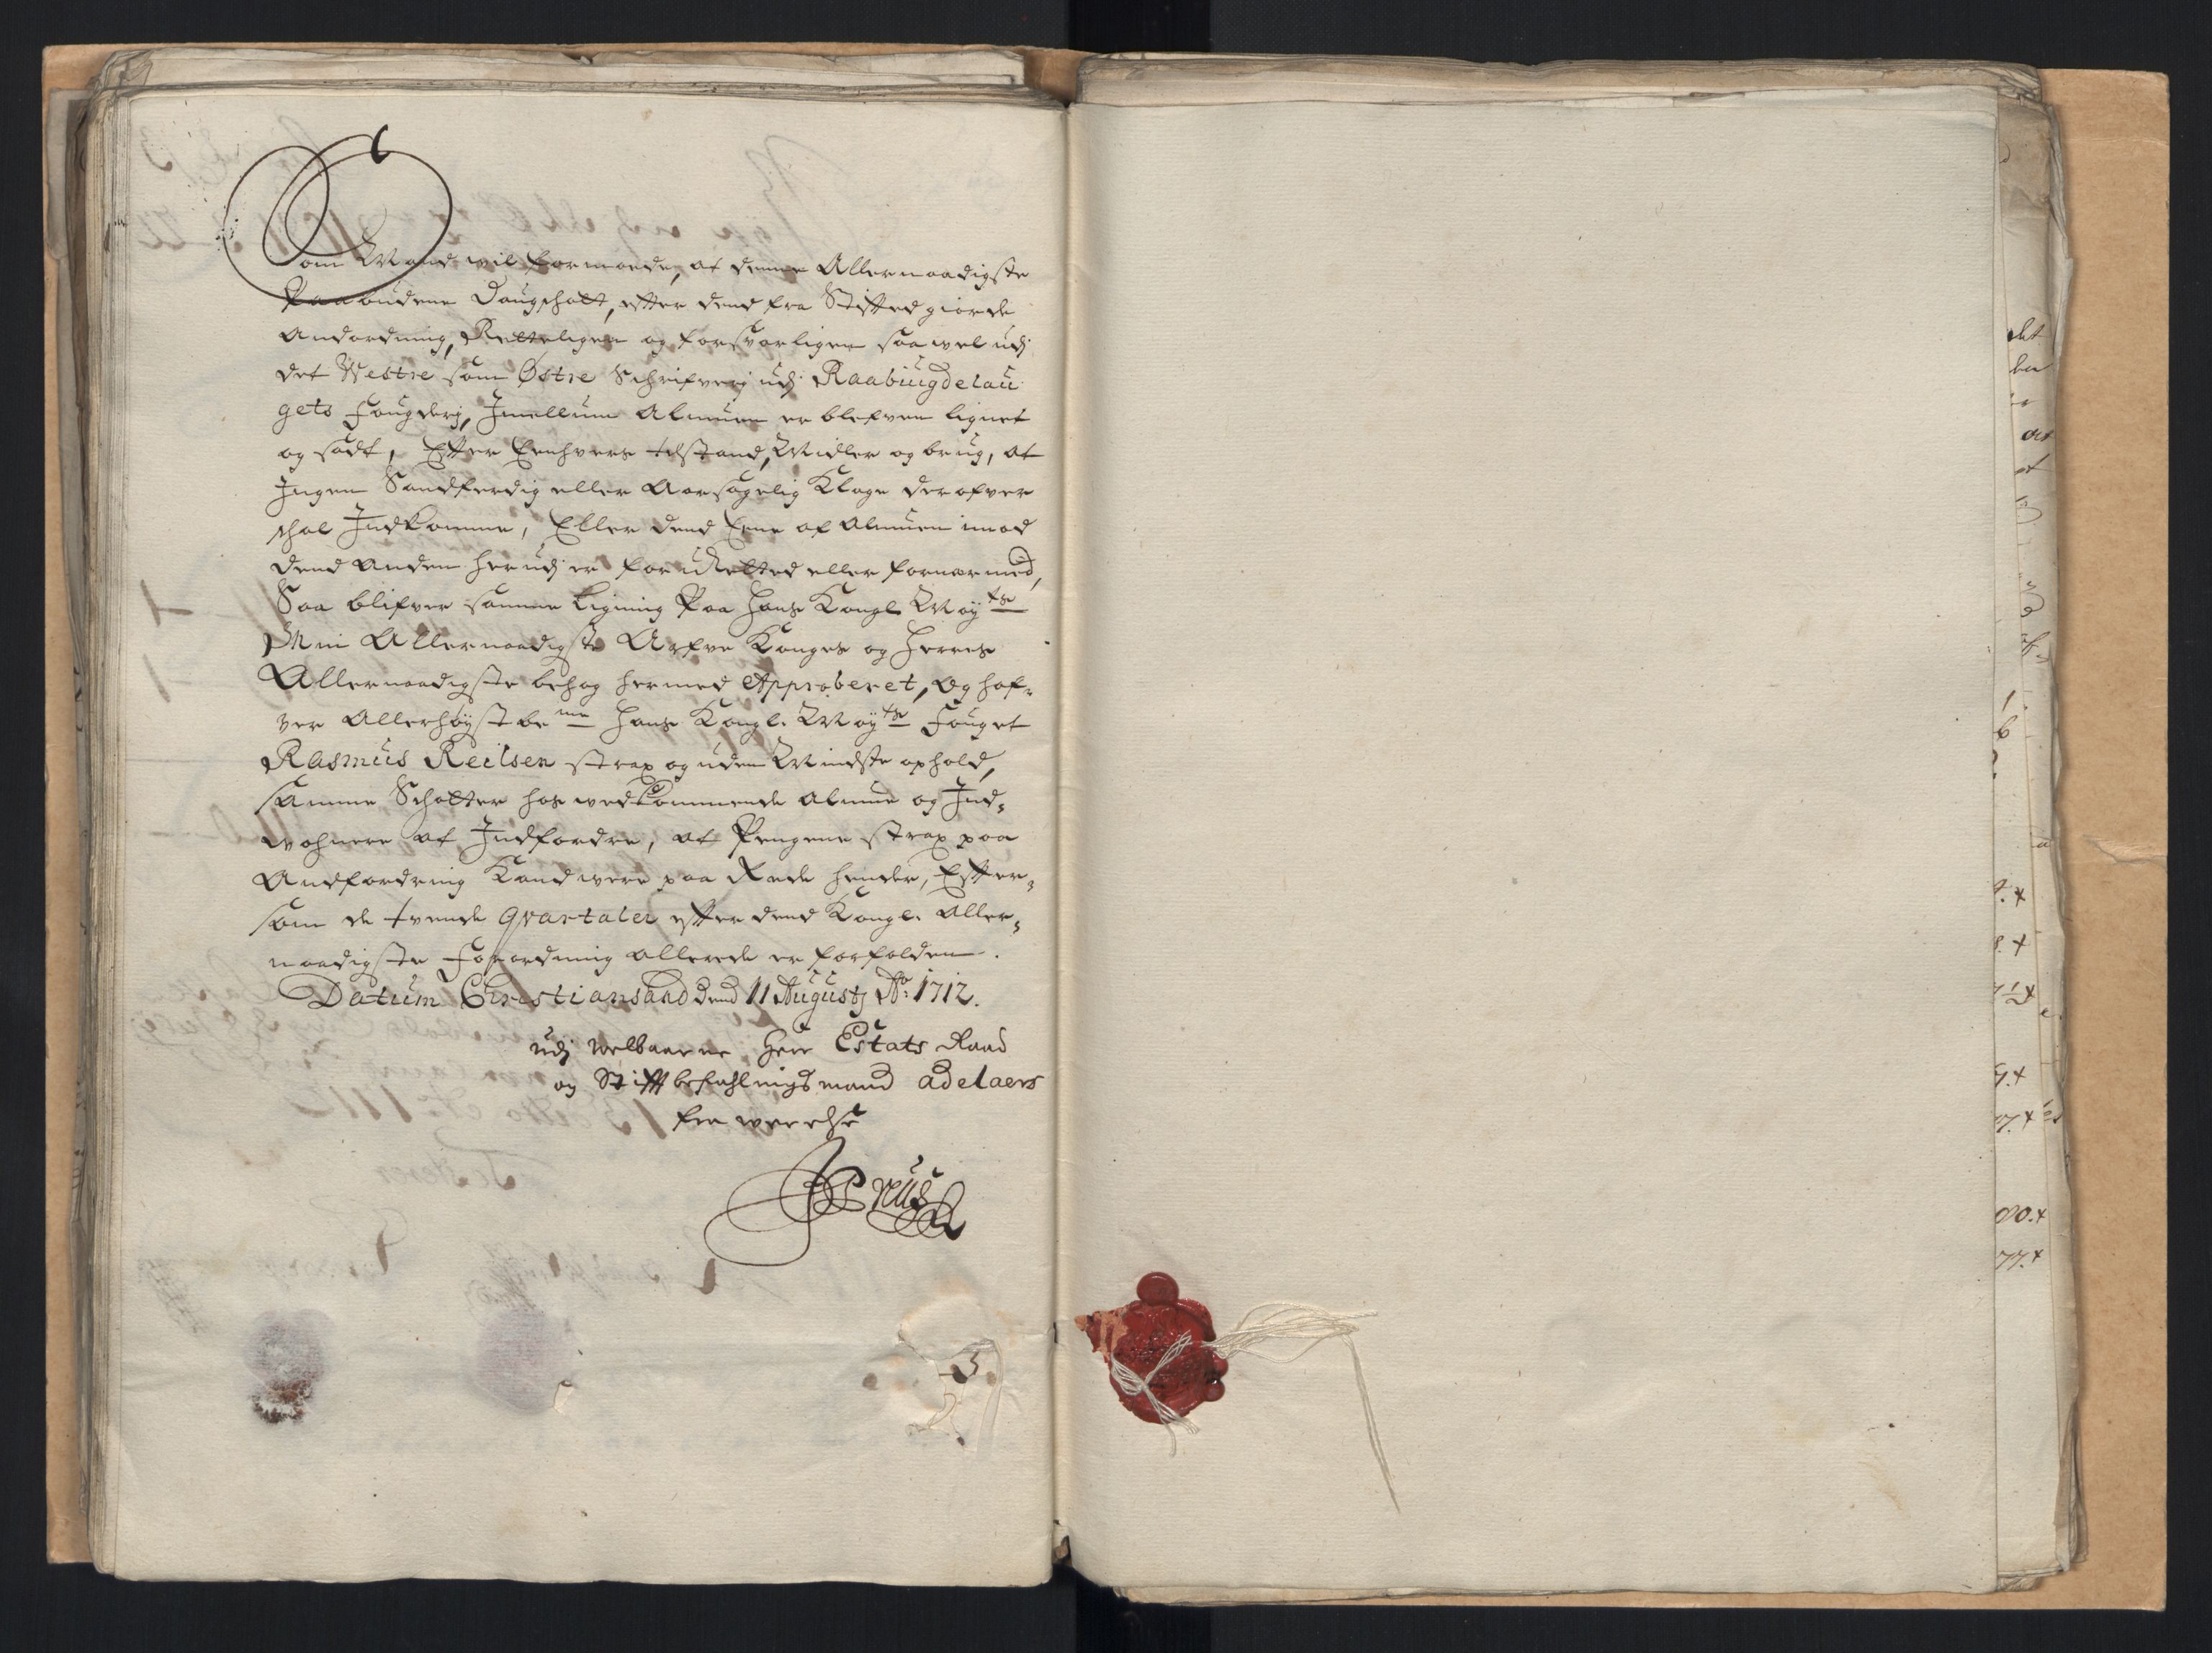 Som Mand vil formode, at denne Allernaadigste
Paabudene Dougschatt, efter dend fra Stifted giorde
Anordning, Retteligen og forsvarligen saa vel udj
det Westre som Østre Schrifverj udj Raabÿgdelau
gets Fougderj, Imellum Almuen er blefven lignet
og sadt, Efter Eenhvers tilstand, Midler og brug, at
Ingen Sandferdig eller Aarsagelig Klage derofver
schal Indkomme, Eller dend Eene af Almuen imod
dend Anden herudj er foruretted eller fornermed,
Saa blifver samme Ligning Paa Hans Kongl Mayts
Min Allernaadigste Arfve Konges og Herres
Allernaadigste behag hermed Approberet, og haf-
ver Allerhøystbeme Hans Kongl. Mayts Fouget
Rasmus Reilsen strax og uden Mindste ophold,
samme Schatter hos vedkommende Almue og Ind-
vohnere at Indfordre, at Pengene strax paa
Andfordring Kand vere paa Rede hender, Efter-
som de tvende Qvartaler efter dend Kongl. Aller-
naadigste Forordning allerede er forfalden.
Datum Christiansand dend 11 Augustj Ao: 1712.
udj Welbaarne Herr Estats Raad
og Stiftbefahlings mand adelaers
fra werelse